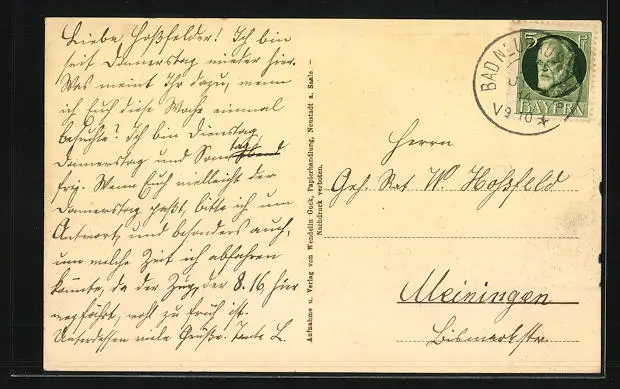 Liebe Hoßfelder! Ich bin
seit Donnerstag wieder hier.
Was meint Ihr dazu, wenn
ich Euch diese Woche einmal
besuchte? Ich bin Dienstag,
Donnerstag und Sonntag
frei. Wenn Euch vielleicht der
Donnerstag paßt, bitte ich um
Antwort, und besonders auch,
um welche Zeit ich abfahren
könnte, da der Zug, der 8.16 hier
wegfährt, wohl zu früh ist.
Unterdessen viele Grüße. Tante L.
Aufnahme u. Verlag von Wendelin Gock, Papierhandlung, Neustadt a. Saale —
Nachdruck verboten.
BAD
V 9-10
5 Pf
BAYERN
Herrn
Geh. Rat W. Hoßfeld
Meiningen
Bismarckstr.